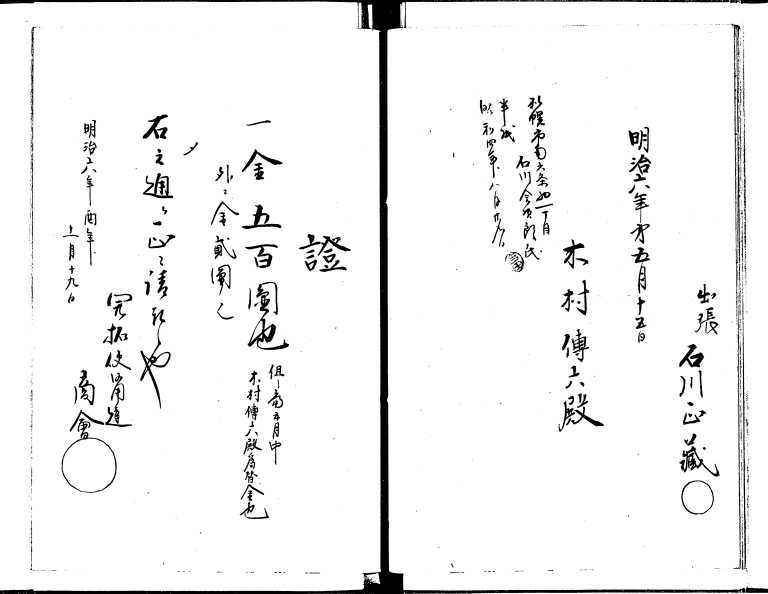 出張
石川正藏
明治六年第五月十五日
木村傳六殿
札幌市南六条西一丁目
石川
氏
昭和四年八月
證
一金五百圓也
但シ 五月中
木村傳六殿為替金也
外ニ金貳圓
右之通正ニ請取
明治六年酉年
十一月十九日
開拓使用達
商會